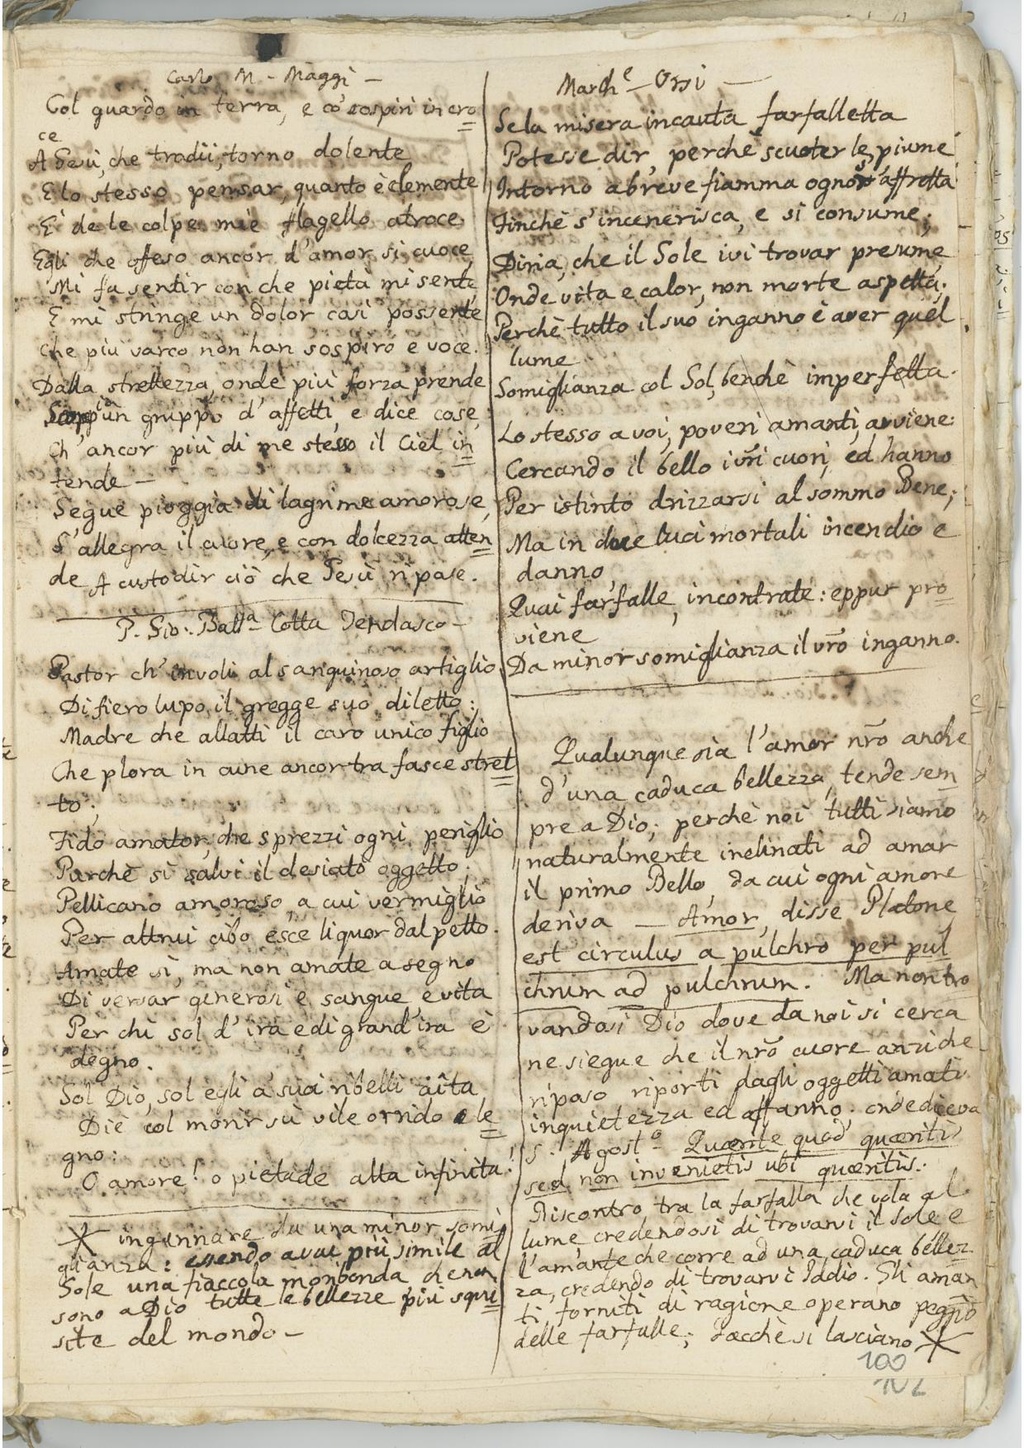 Carlo M - Maggi -
Col guardo in terra, e co' sospiri in cro
ce
A Gesù, che tradii, torno dolente
E lo stesso pensar, quanto è clemente
E' de le colpe mie flagello atroce
Egli che offeso ancor d'amor si cuoce
Mi fa sentir con che pietà mi sente,
E mi stringe un dolor così possente
Che più varco non han sospiro e voce.
Dalla strettezza, onde più forza prende
Scoppia un gruppo d'affetti, e dice cose,
Ch'ancor più di me stesso il Ciel in
tende -
Segue pioggia di lagrime amorose,
S'allegra il cuore, e con dolcezza atten
de A custodir ciò che Gesù ripose.
P. Gio: Batta Cotta Tendasco -
Pastor ch'involi al sanguinoso artiglio
Di fiero lupo il gregge suo diletto;
Madre che allatti il caro unico figlio
Che plora in cune ancor tra fasce stret
to;
Fido amator, che sprezzi ogni periglio
Purchè si salvi il desiato oggetto;
Pellicano amoroso, a cui vermiglio
Per altrui cibo esce liquor dal petto.
Amate sì, ma non amate a segno
Di versar generosi e sangue e vita
Per chi sol d'ira e di grand'ira è
degno.
Sol Dio, sol egli a' suoi ribelli aita
Diè col morir sù vile orrido le
gno:
O amore! o pietade alta infinita!
* ingannare da una minor somi
glianza: essendo assai più simile al
Sole una fiaccola moribonda che non
sono a Dio tutte le bellezze più squi
site del mondo -
Marche - Orsi -
Se la misera incauta farfalletta
Potesse dir, perchè scuoter le piume
Intorno a breve fiamma ognor s'affretta
Finchè s'incenerisca, e si consume;
Diria, che il Sole ivi trovar presume
Onde vita e calor, non morte aspetta;
Perchè tutto il suo inganno è aver quel
lume
Somiglianza col Sol, benchè imperfetta.
Lo stesso a voi, poveri amanti, avviene:
Cercando il bello i vri cuori, ed hanno
Per istinto drizzarsi al sommo Bene;
Ma in due luci mortali incendio e
danno,
Quai farfalle, incontrate: eppur pro
viene
Da minor somiglianza il vro inganno.
Qualunque sia l'amor nro anche
d'una caduca bellezza, tende sem
pre a Dio; perchè noi tutti siamo
naturalmente inclinati ad amar
il primo Bello, da cui ogni amore
deriva — Amor, disse Platone
est circulus a pulchro per pul
chrum ad pulchrum. Ma non tro
vandosi Dio dove da noi si cerca
ne siegue che il nro cuore anziche
riposo riporti dagli oggetti amati
inquietezza ed affanno. onde diceva
S. Agosto Quaerite quod quaeritis
sed non invenietis ubi quaeritis.
Riscontro tra la farfalla che vola al
lume credendosi di trovarvi il Sole e
l'amante che corre ad una caduca bellez
za, credendo di trovarvi Iddio. Gli aman
ti forniti di ragione operano peggio
delle farfalle; Giacchè si lasciano *
100
102